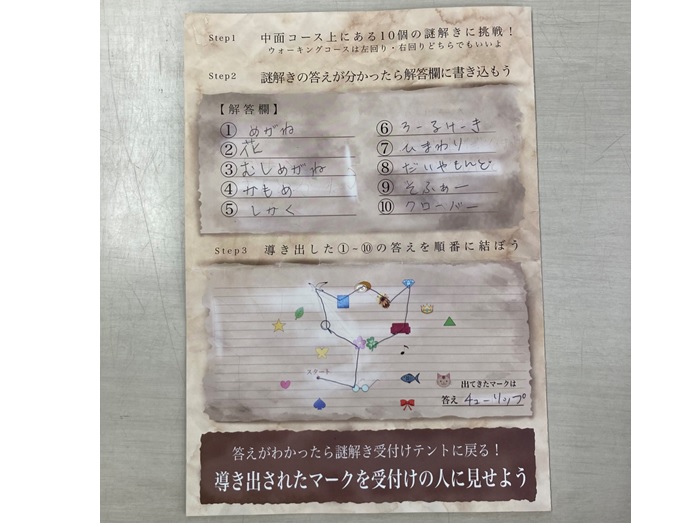 Step1 中面コース上にある10個の謎解きに挑戦！
ウォーキングコースは左回り・右回りどちらでもいいよ
Step2 謎解きの答えが分かったら解答欄に書き込もう
【解答欄】
① めがね
② 花
③ むしめがね
④ かもめ
⑤ しかく
⑥ ろーるけーき
⑦ ひまわり
⑧ だいやもんど
⑨ そふぁー
⑩ クローバー
Step3 導き出した①-⑩の答えを順番に結ぼう
スタート
出てきたマークは
答え チューリップ
答えがわかったら謎解き受付けテントに戻る！
導き出されたマークを受付けの人に見せよう